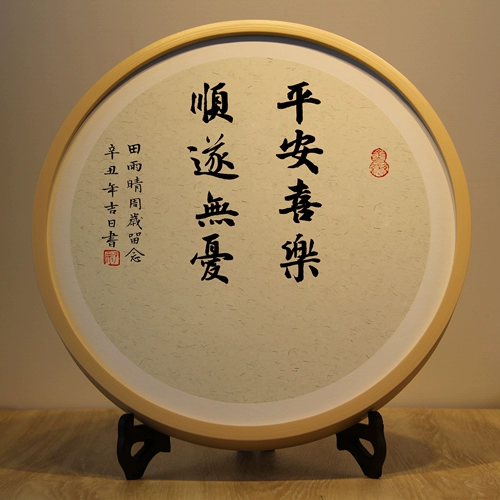 平安喜樂
順遂無憂
田雨晴周歲留念
辛丑年吉日書